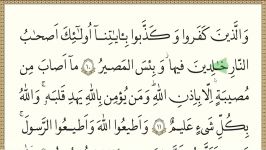 وَالَّذِينَ كَفَرُوا وَ كَذَّبُوا بِـَٔايَٰتِنَآ أُولَٰٓئِكَ أَصْحَٰبُ
النَّارِ خَٰلِدِينَ فِيهَا وَ بِئْسَ الْمَصِيرُ ١٠ مَآ أَصَابَ مِن
مُصِيبَةٍ إِلَّا بِإِذْنِ اللَّهِ وَ مَن يُؤْمِن بِاللَّهِ يَهْدِ قَلْبَهُ وَاللَّهُ
بِكُلِّ شَيْءٍ عَلِيمٌ ١١ وَ أَطِيعُوا اللَّهَ وَ أَطِيعُوا الرَّسُولَ